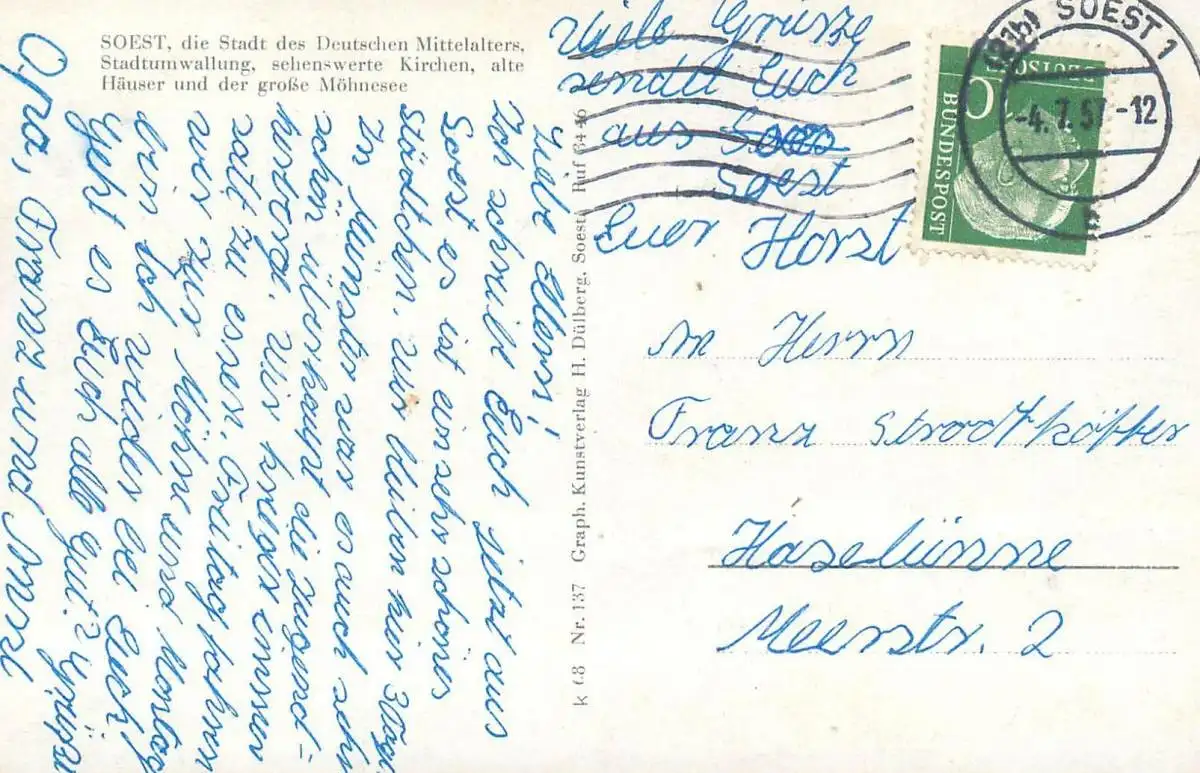 SOEST, die Stadt des Deutschen Mittelalters,
Stadtumwallung, sehenswerte Kirchen, alte
Häuser und der große Möhnesee
Liebe Eltern!
Ich schreibe Euch jetzt aus
Soest es ist ein sehr schönes
städtchen. wir bleiben hier 3 Tage
In Münster war es auch sehr
schön überhaupt die Jugend-
herberge. Wir kregen immer
satt zu essen. Freitag fahren
wir zur Möhne und Montag
bin ich wieder bei Euch!
Geht es Euch alle gut? Grüße
Opa, Franz und
Viele Grüsze
sendet Euch
aus
Soest
Euer Horst
k 68 Nr. 137 Graph. Kunstverlag H. Dülberg, Soest, Ruf 3446
(21b) SOEST 1
-4.7.57-12
DEUTSCHE
BUNDESPOST
Herrn
Franz Strodtköpper
Haselünne
Meerstr. 2